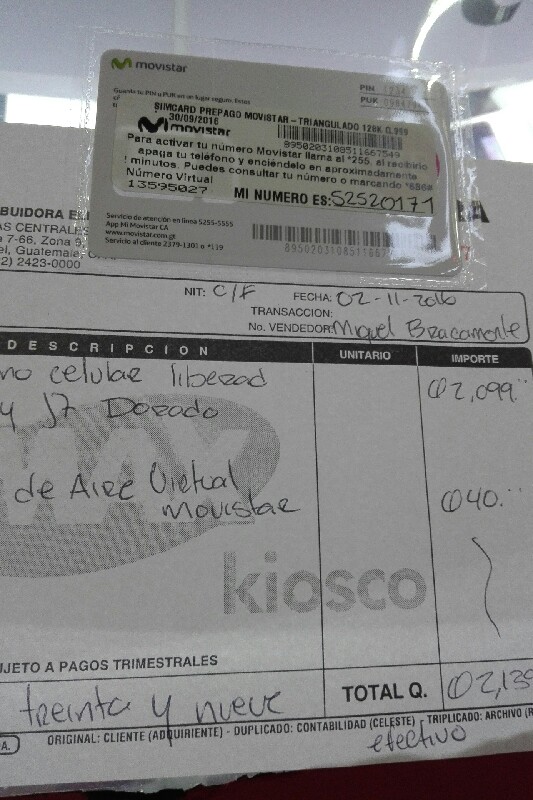 movistar
Guarda tu PIN y PUK en un lugar seguro, estos
PIN
PUK
SIMCARD PREPAGO MOVISTAR - TRIANGULADO 128K 0.999
30/09/2016
movistar
8950203108511667549
Para activar tu número Movistar llama al *255, al recibirlo
apaga tu teléfono y enciéndelo en aproximadamente
minutos. Puedes consultar tu número o marcando *686#
Número Virtual
13595027
MI NUMERO ES: 52520171
Servicio de atención en línea 5255-5555
App Mi Movistar CA
www.movistar.com.gt
Servicio al cliente 2379-1301 o *119
BUIDORA
AS CENTRALES
7-66, Zona 9
el, Guatemala
2) 2423-0000
NIT: C/F
FECHA: 02-11-2016
TRANSACCION:
No. VENDEDOR: Miguel Bracamonte
DESCRIPCION UNITARIO IMPORTE
no celular liberad Q2,099.
y J7 Dorado
MAX
de Aire Virtual
movistar Q40.
kiosco
UJETO A PAGOS TRIMESTRALES
treinta y nueve TOTAL Q. Q2,139
ORIGINAL: CLIENTE (ADQUIRIENTE) - DUPLICADO: CONTABILIDAD (CELESTE) TRIPLICADO: ARCHIVO
efectivo